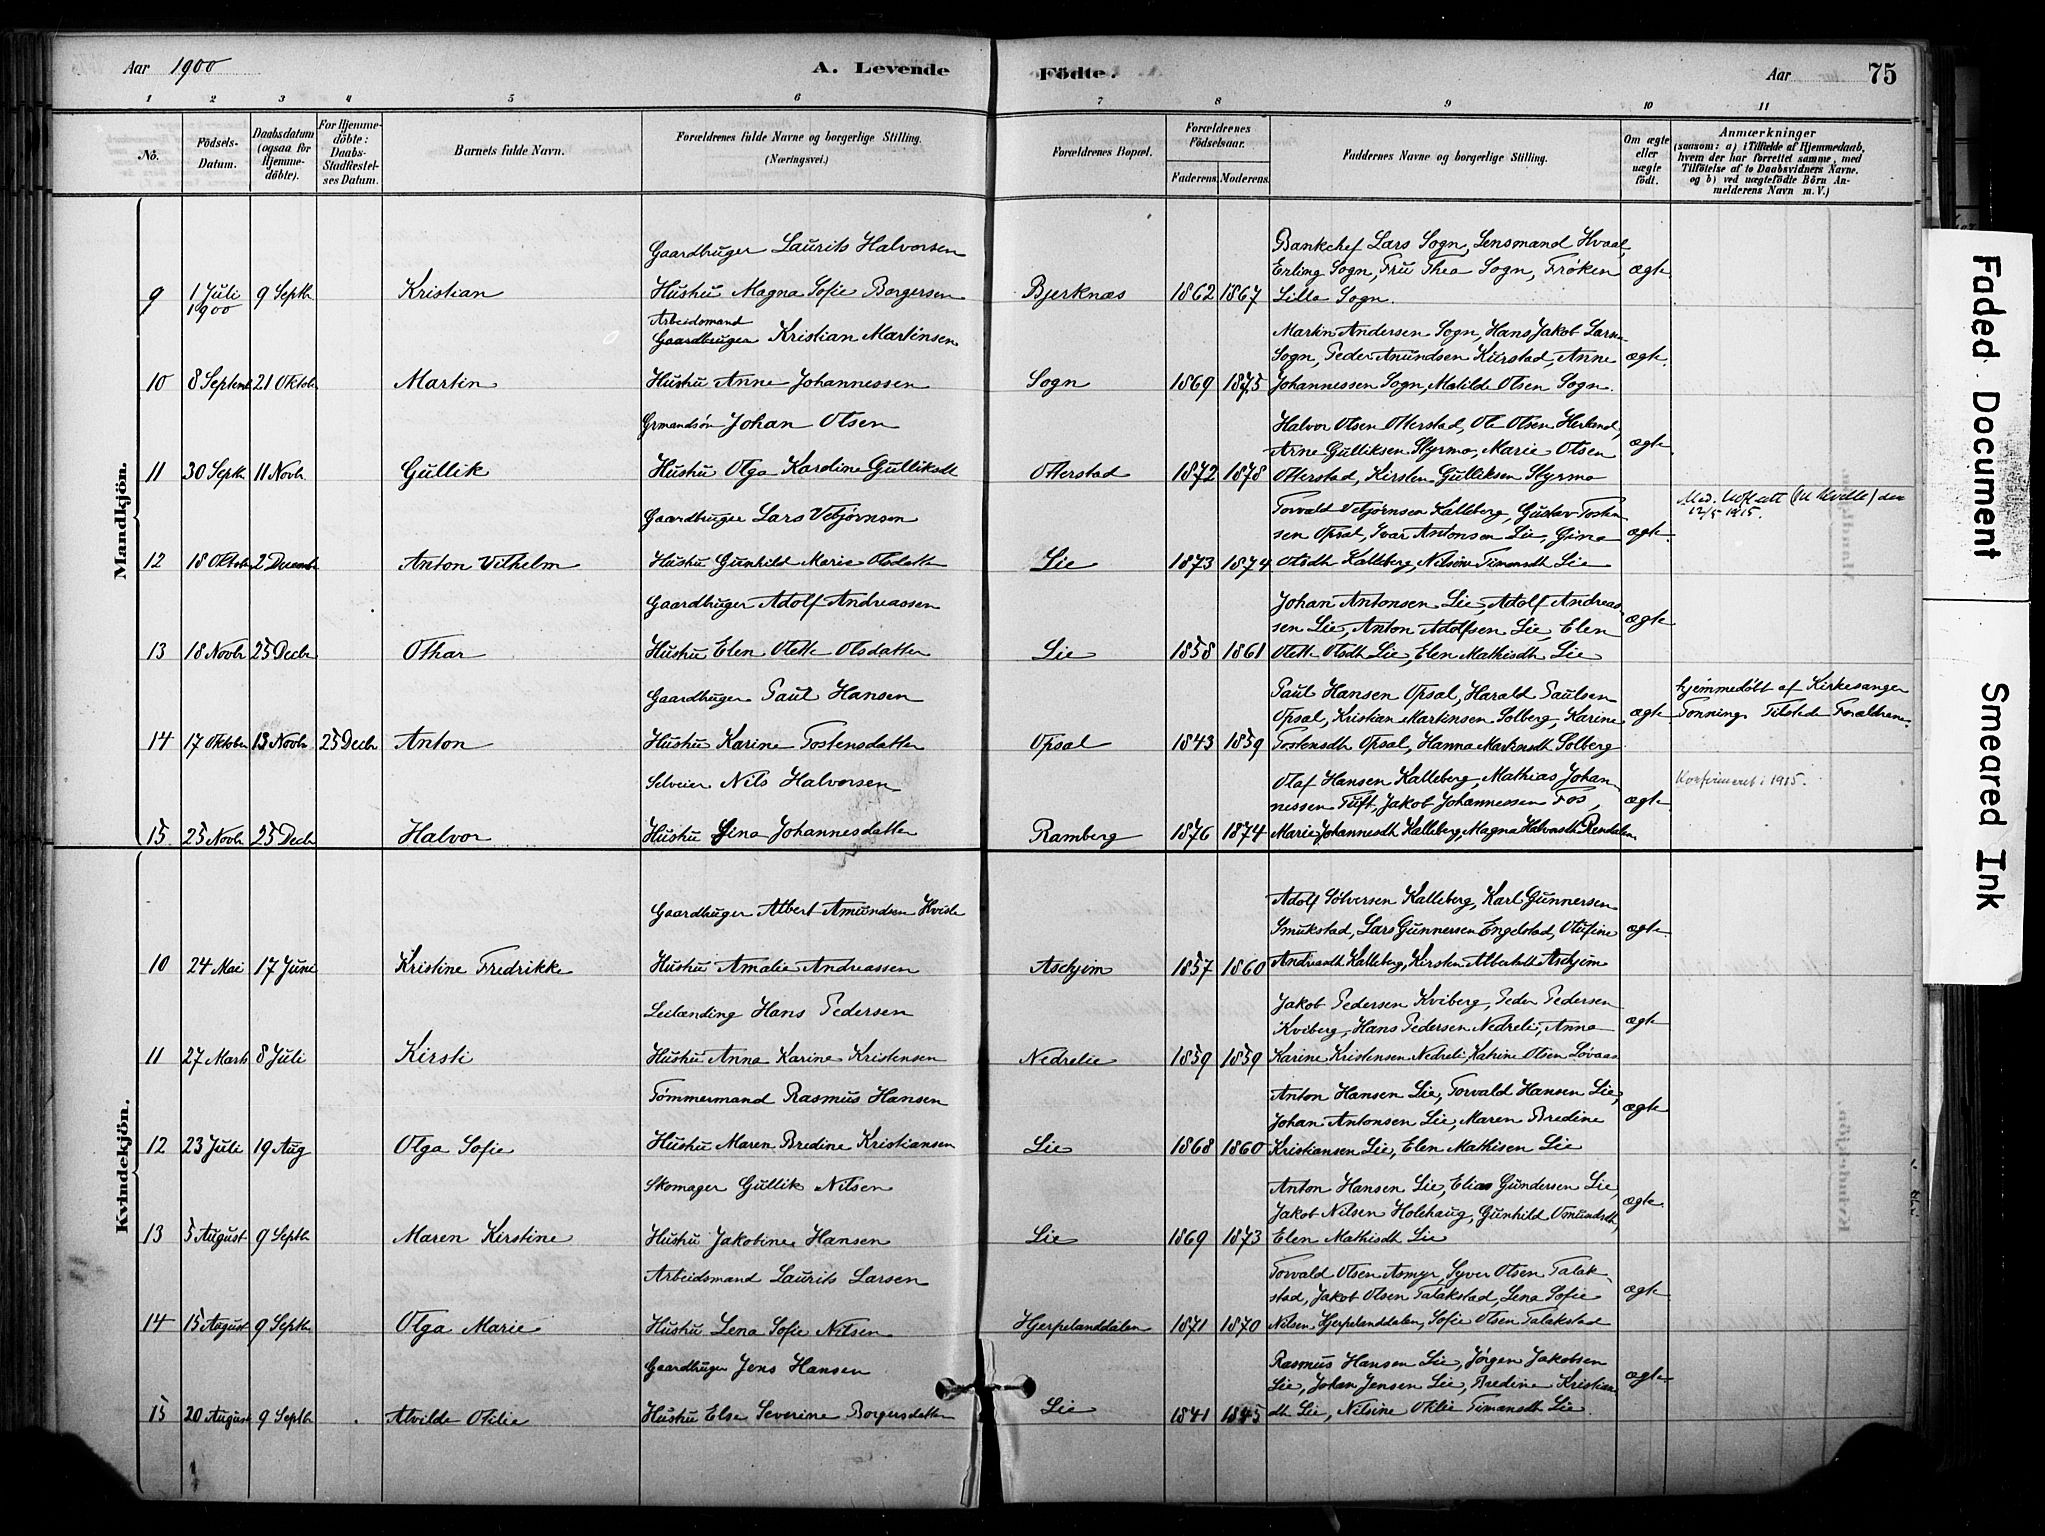 Aar 1900
A. Levende
Födte.
Aar
75
1 2 3 4 5 6 7 8 9 10 11
No.
Födsels-
Datum.
Daabsdatum
(ogsaa for
Hjemme-
döbte).
For Hjemme-
döbte:
Daabs-
Stadfæstel-
ses Datum.
Barnets fulde Navn.
Forældrenes fulde Navne og borgerlige Stilling.
(Næringsvei.)
Forældrenes Bopæl.
Forældrenes
Födselsaar.
Faderens. Moderens.
Faddernes Navne og borgerlige Stilling.
Om ægte
eller
uægte
födt.
Anmærkninger
(saasom: a) i Tilfælde af Hjemmedaab,
hvem der har forrettet samme, med
Tilföielse af to Daabsvidners Navne.
og b) ved uægtefödte Börn An-
melderens Navn m. V.)
Mandkjön.
Gaardbruger Laurits Halvorsen
Bankchef Lars Sogn, Lensmand Hvaal,
Erling Sogn, Fru Thea Sogn, Frøken ægte
9 1 Juli 9 Septbr Kristian Hustru Magna Sofie Borgersen Bjerknæs 1862 1867 Lilla Sogn.
1900
Arbeidsmand
Gaardbruger Kristian Martinsen
Martin Andersen Sogn, Hans Jakob Larsen
Sogn, Peder Anundsen Kurstad, Anne ægte
10 8 Septemb 21 Oktobr Martin Hustru Anne Johannessen Sogn 1869 1875 Johannessen Sogn, Matilde Olsen Sogn.
Grmandsön Johan Olsen
Halvor Olsen Otterstad, Ole Olsen Herland,
Arne Gulliksen Styrmo, Marie Olsen ægte
11 30 Septbr 11 Novbr Gullik Hustru Olga Karoline Gulliksdt Otterstad 1872 1878 Otterstad, Kirsten Gulliksen Styrmo
Gaardbruger Lars Vebjørnsen
Torvald Vebjørnsen Kalleberg, Gustav Tosten-
sen Opsal, Ivar Antonsen Lie, Gina ægte
12/5 1915.
12 18 Oktobr 2 Decemb Anton Vilhelm Hustru Gunhild Marie Olsdatter Lie 1873 1874 Olsdtr Kalleberg, Nilsine Timansdtr Lie
Gaardbruger Adolf Andreassen
Johan Antonsen Lie, Adolf Andreas-
sen Lie, Anton Adolfsen Lie, Elen ægte
13 18 Novbr 25 Decbr Othar Hustru Elen Olette Olsdatter Lie 1858 1861 Olette Olsdtr Lie, Elen Mathisdtr Lie
Gaardbruger Paul Hansen
Paul Hansen Opsal, Harald Paulsen
Opsal, Kristian Martinsen Solberg, Karine ægte
hjemmedøbt af Kirkesanger
Tonning. Tilstede Forældrene.
14 17 Oktober 13 Novbr 25 Decbr Anton Hustru Karine Tostensdatter Opsal 1843 1859 Tostensdtr Opsal, Hanna Martensdtr Solberg
Selveier Nils Halvorsen
Olaf Hansen Kalleberg, Mathias Johan-
nessen Tuft, Jakob Johannessen Fos, ægte
Konfirmeret i 1915.
15 25 Novbr 25 Decbr Halvor Hustru Lina Johannesdatter Ramberg 1876 1874 Marie Johannesdtr Kalleberg, Magna Halvorsdtr Rendalen
Kvindekjön.
Gaardbruger Albert Amundsen Hvisle
Adolf Sølversen Kalleberg, Karl Gunnersen
Smukstad, Lars Gunnersen Engelstad, Olufine ægte
10 24 Mai 17 June Kristine Fredrikke Hustru Amalie Andreassen Aschjim 1857 1860 Andreasdtr Kalleberg, Kirsten Albertsdtr Aschjim
Leilænding Hans Pedersen
Jakob Pedersen Kviberg, Peder Pedersen
Kviberg, Hans Pedersen Nedreli, Anna ægte
11 27 Marts 8 Juli Kirsti Hustru Anna Karine Kristensen Nedrelie 1859 1859 Karine Kristensen Nedreli, Katrine Olsen Løvaas
Tømmermand Rasmus Hansen
Anton Hansen Lie, Torvald Hansen Lie,
Johan Antonsen Lie, Maren Bredine ægte
12 23 Juli 19 Aug Olga Sofie Hustru Maren Bredine Kristiansen Lie 1868 1860 Kristiansen Lie, Elen Mathisen Lie
Skomager Gullik Nilsen
Anton Hansen Lie, Elias Gundersen Lie,
Jakob Nilsen Holehaug, Gunhild Omundsdt, ægte
13 5 August 9 Septbr Maren Kirstine Hustru Jakobine Hansen Lie 1869 1873 Elen Mathisdtr Lie
Arbeidsmand Laurits Larsen
Torvald Olsen Asmyr, Syver Olsen Talak-
stad, Jakob Olsen Talakstad, Lena Sofie ægte
14 15 August 9 Septbr Olga Marie Hustru Lena Sofie Nilsen Hjerpelanddalen 1871 1870 Nilsen Hjerpelanddalen, Sofie Olsen Talakstad
Gaardbruger Jens Hansen
Rasmus Hansen Lie, Jørgen Jakobsen
Lie, Johan Jensen Lie, Bredine Kristian ægte
15 20 August 9 Septbr Alvilde Otilie Hustru Else Severine Borgersdatter Lie 1841 1845 dtr Lie, Nilsine Otilie Timansdtr Lie.
Faded Document
Smeared Ink